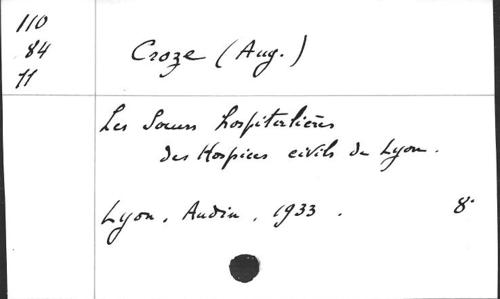 110
84
11
Croze (Aug.)
Les Soeurs hospitalières
des Hospices civils de Lyon.
Lyon, Audin, 1933.
8°